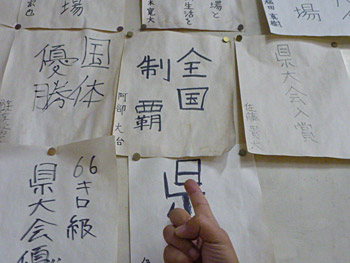 場
場と
生活を
場
国体
優勝
全国
制覇
阿部 大台
県大会入賞
66キロ級
県大会優
県